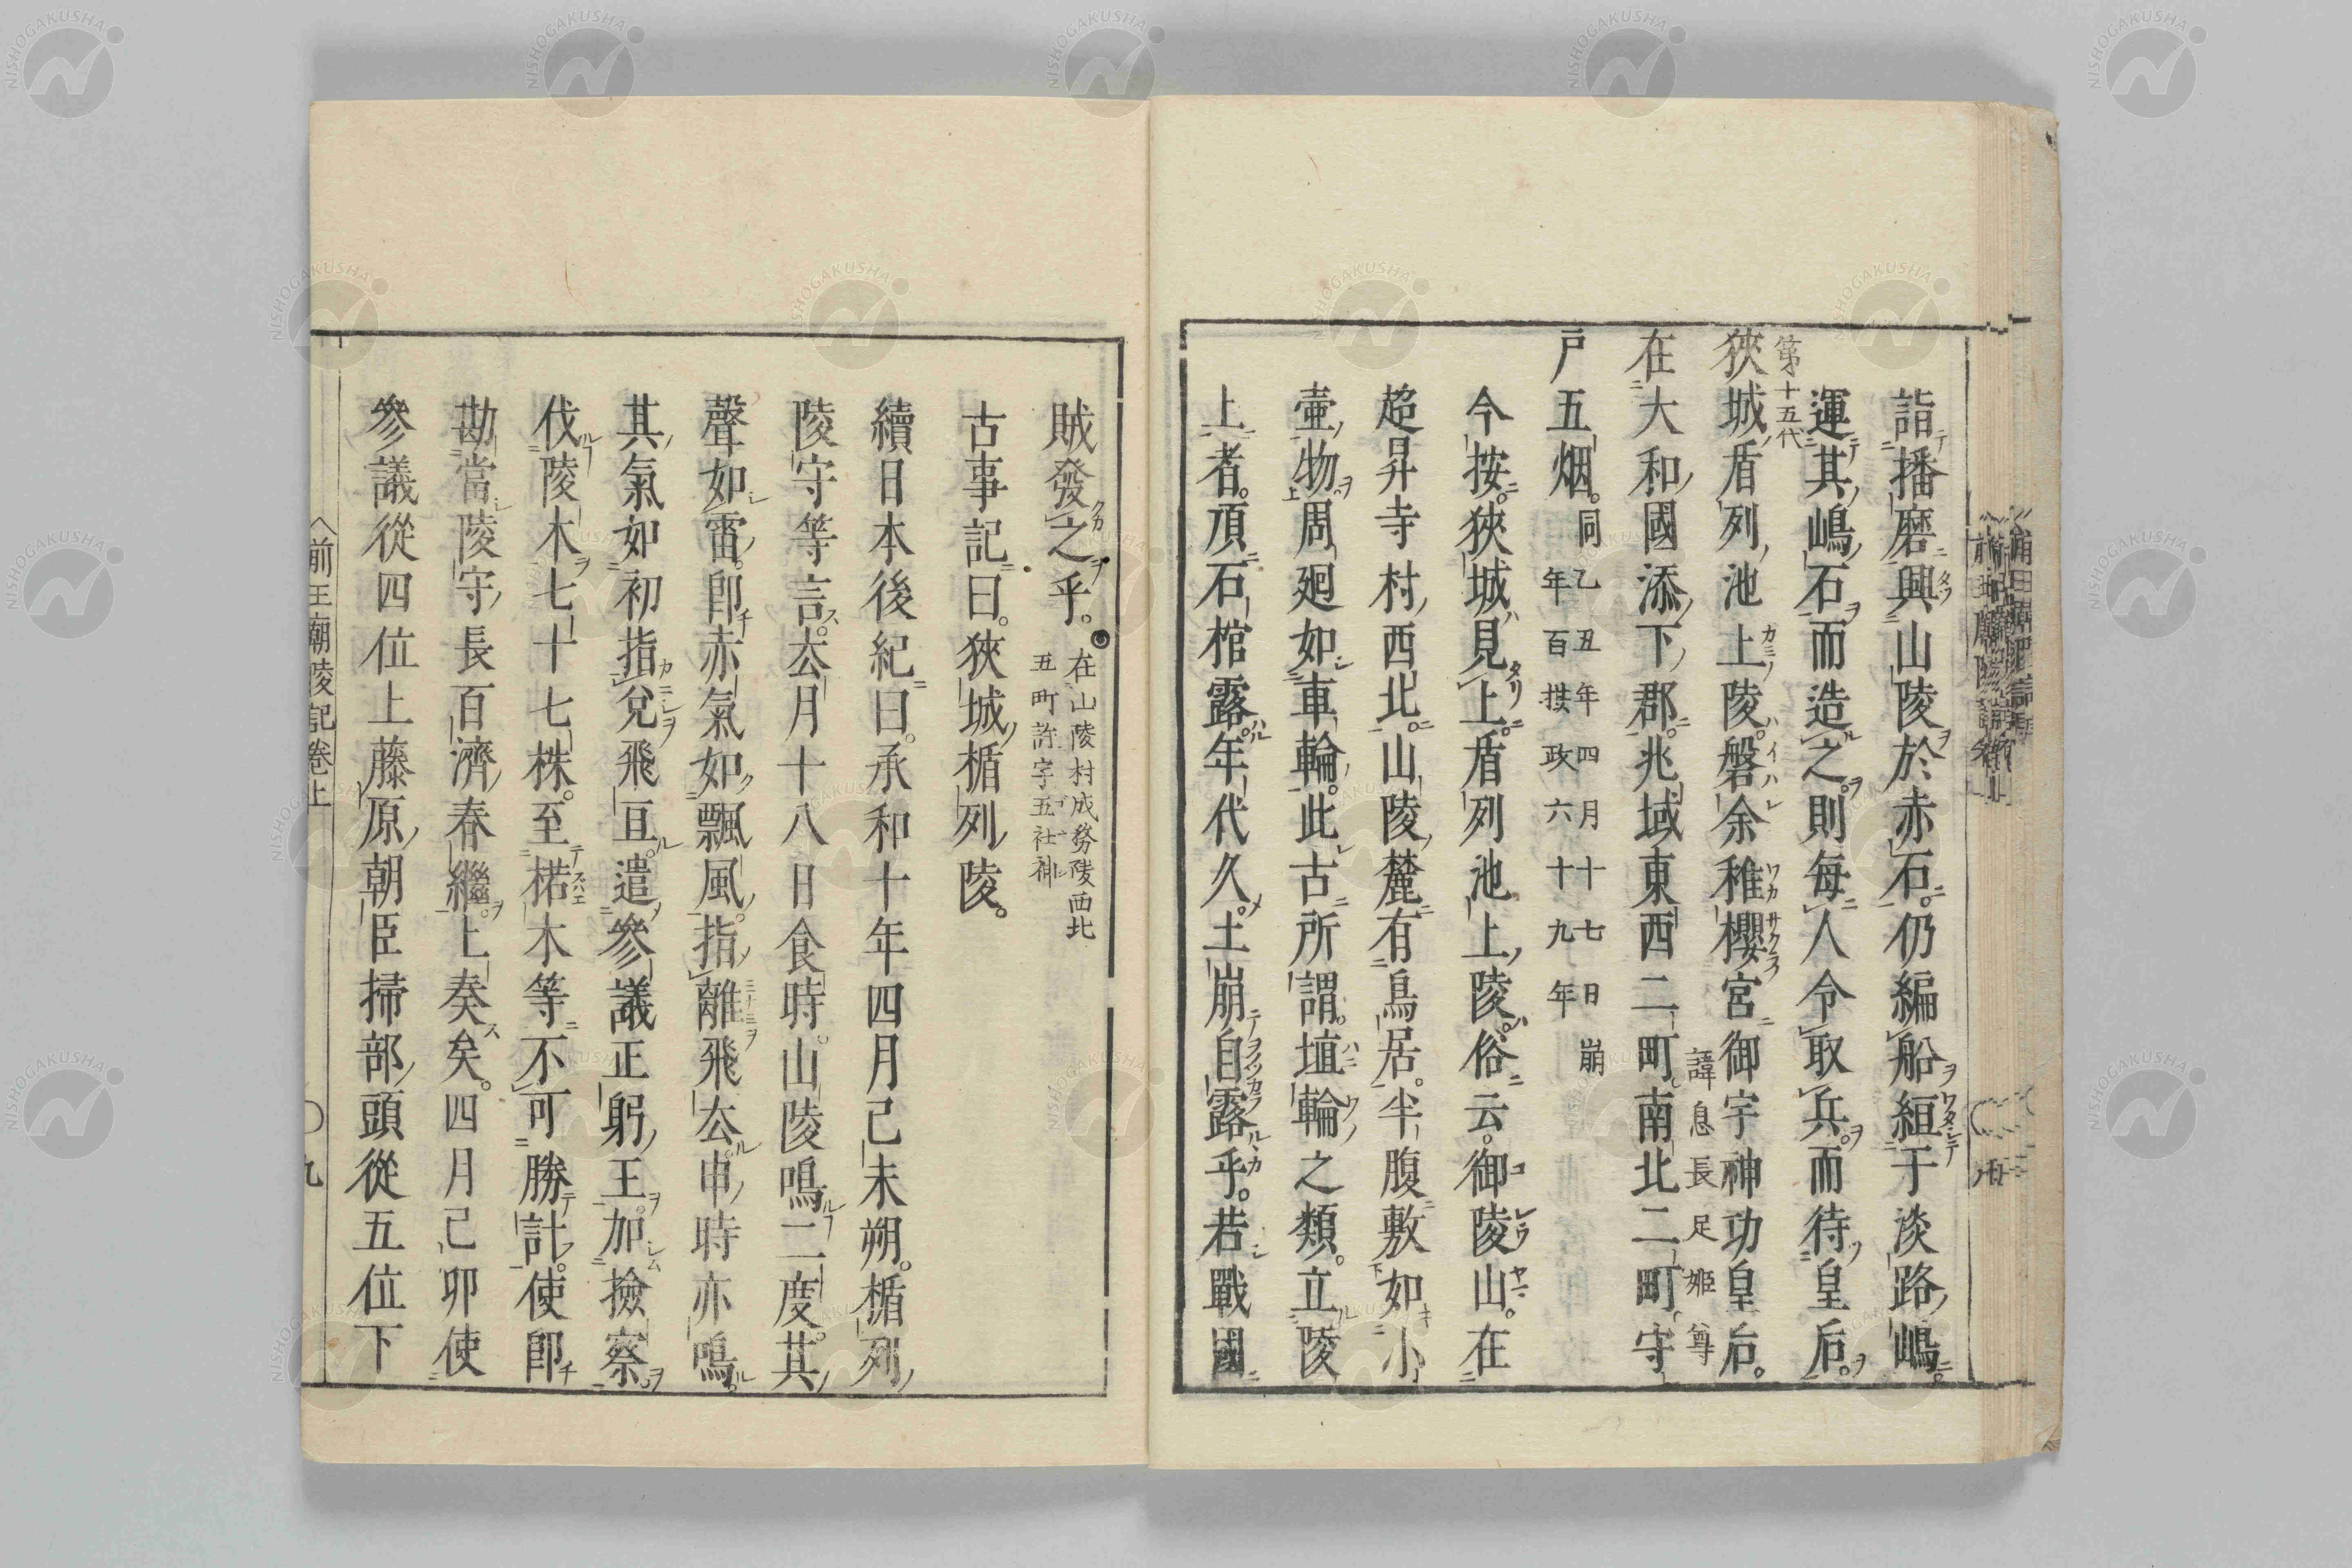 詣播磨興山陵於赤石。仍編船絙于淡路嶋。
運其嶋石而造之。則每人令取兵。而待皇后。
第十五代
狹城盾列池上陵。磐余稚櫻宮御宇神功皇后。
諱息長足姬尊
在大和國添下郡。兆域東西二町。南北二町。守
戸五烟。
同乙丑年四月十七日崩
年百攝政六十九年
今按。狹城見上。盾列池上陵。俗云。御陵山。在
超昇寺村西北。山陵麓有鳥居。半腹敷如小
壷物。周廻如車輪。此古所謂。埴輪之類。立陵
上者。頂石棺露。年代久。土崩自露乎。若戰國
賊發之乎。
在山陵村成務陵西北
五町許字五社神
古事記曰。狹城楯列陵。
續日本後紀曰。承和十年四月己未朔。楯列
陵守等言。去月十八日食時。山陵鳴二度。其
聲如雷。卽赤氣如飄風。指離飛去。申時亦鳴。
其氣如初指兌飛亘。遣參議正躬王。加撿察。
伐陵木七十七株。至楉木等不可勝計。使卽
勘當陵守長百濟春繼。上奏矣。四月己卯使
參議從四位上藤原朝臣掃部頭從五位下
前王廟陵記卷上
九